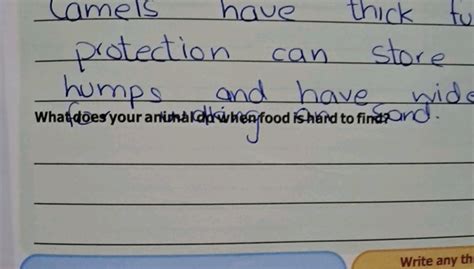 Camels have thick fu
protection can store
humps and have wide
for walking on sand.
What does your animal do when food is hard to find?
Write any th